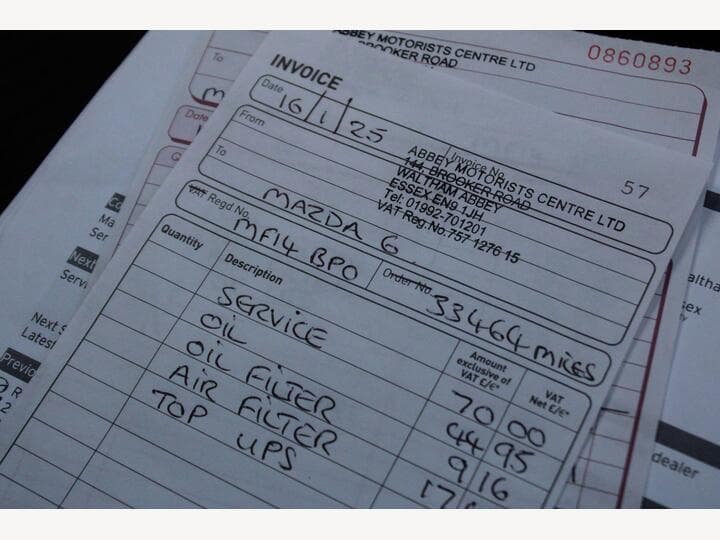 ABBEY MOTORISTS CENTRE LTD
BROOKER ROAD
0860893
To
Date
INVOICE
Date
16/1/25
Invoice No.
57
From
ABBEY MOTORISTS CENTRE LTD
144, BROOKER ROAD
WALTHAM ABBEY
ESSEX EN9 1JH
Tel: 01992-701201
VAT Reg.No.757 1276 15
To
MAZDA 6
VAT Regd No.
MF14 BPO
Order No.
33464 MILES
Quantity
Description
Amount
exclusive of
VAT £/€*
VAT
Net £/€*
SERVICE
70 00
OIL
44 95
OIL FILTER
9 16
AIR FILTER
TOP UPS
Next
Next
dealer